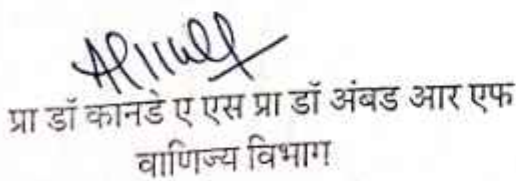 प्रा डॉ कानडे ए एस प्रा डॉ अंबड आर एफ
वाणिज्य विभाग